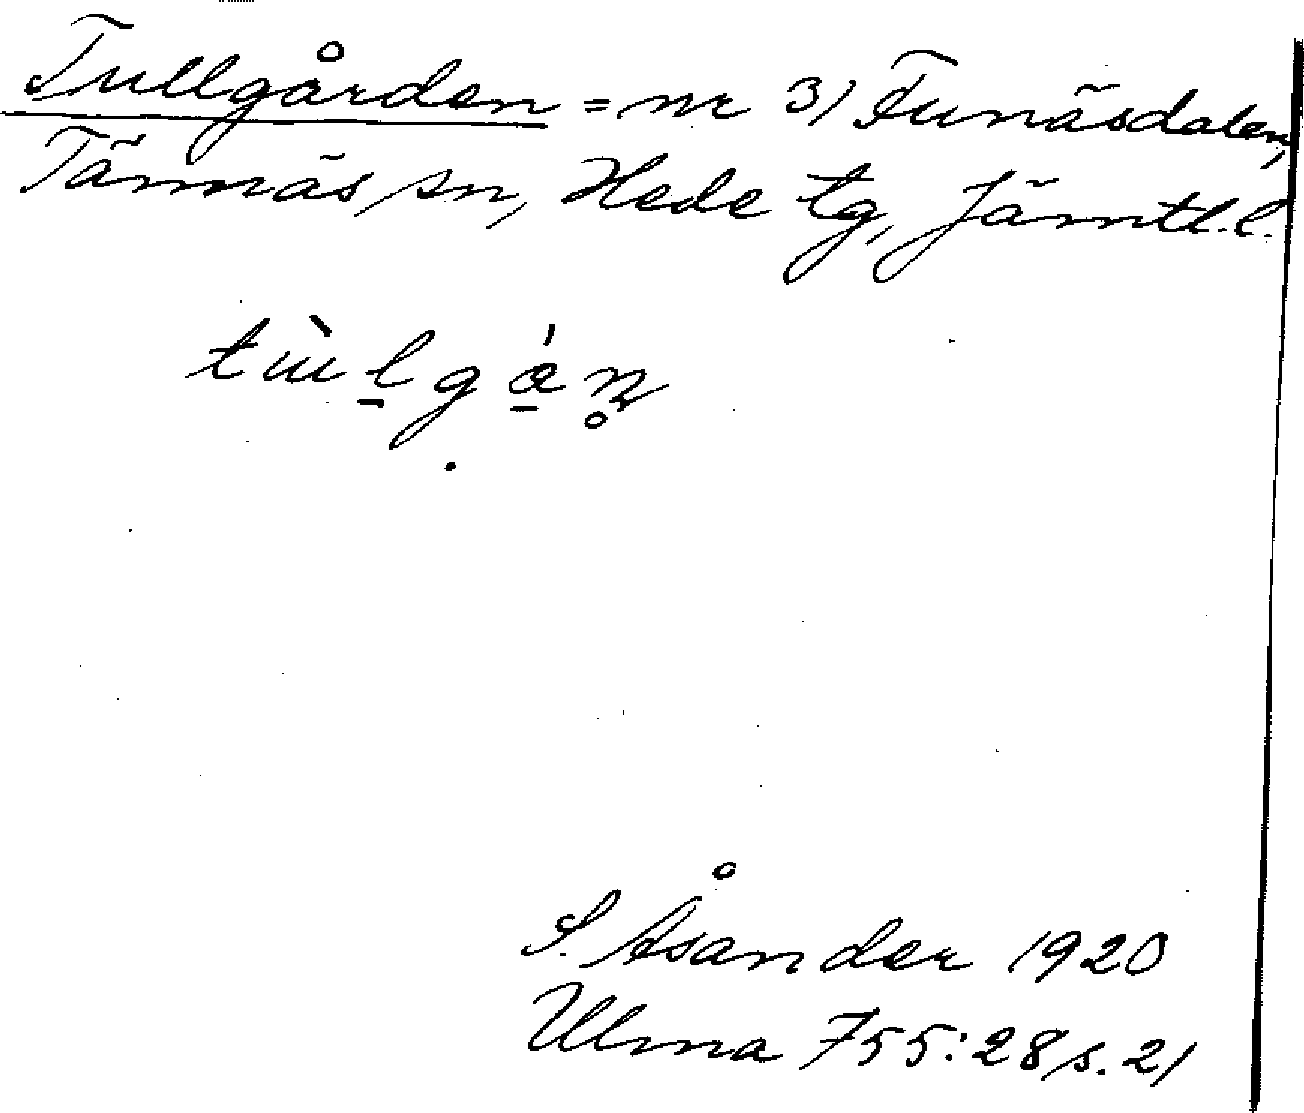 Tullgården = nr 31 Funäsdalen,
Tännäs sn, Hede tg, Jämtl. l.
S. Åsander 1920
Ulma 755:28 s. 21